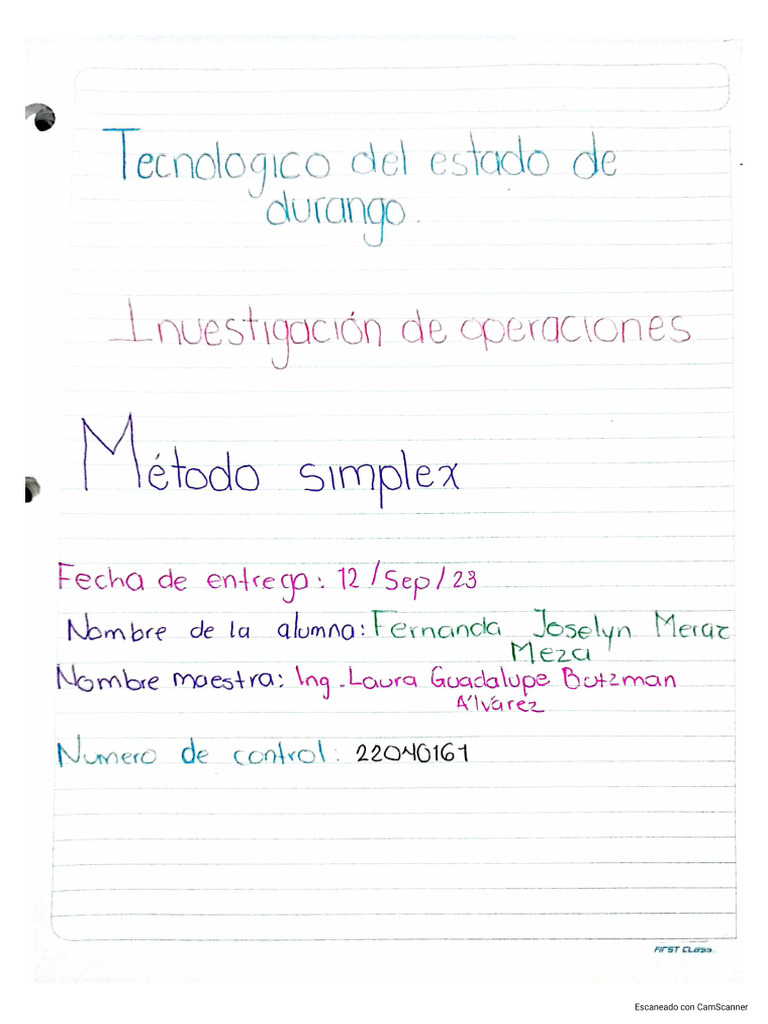 Tecnologico del estado de
durango.
Investigación de operaciones
Método simplex
Fecha de entrega: 12/Sep/23
Nombre de la alumna: Fernanda Joselyn Meraz
Meza
Nombre maestra: Ing. Laura Guadalupe Botzman
A'lvárez
Numero de control: 22040161
FIRST CLASS
Escaneado con CamScanner